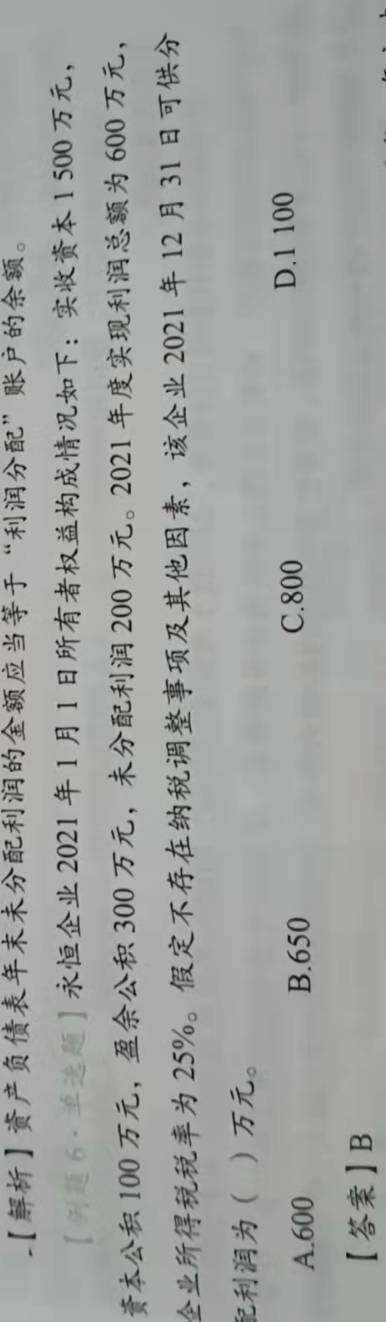 【解析】资产负债表年末未分配利润的金额应当等于“利润分配”账户的余额。
【例题6·单选题】永恒企业2021年1月1日所有者权益构成情况如下：实收资本1 500万元，
资本公积100万元，盈余公积300万元，未分配利润200万元。2021年度实现利润总额为600万元，
企业所得税税率为25%。假定不存在纳税调整事项及其他因素，该企业2021年12月31日可供分
配利润为（ ）万元。
A.600 B.650 C.800 D.1 100
【答案】B